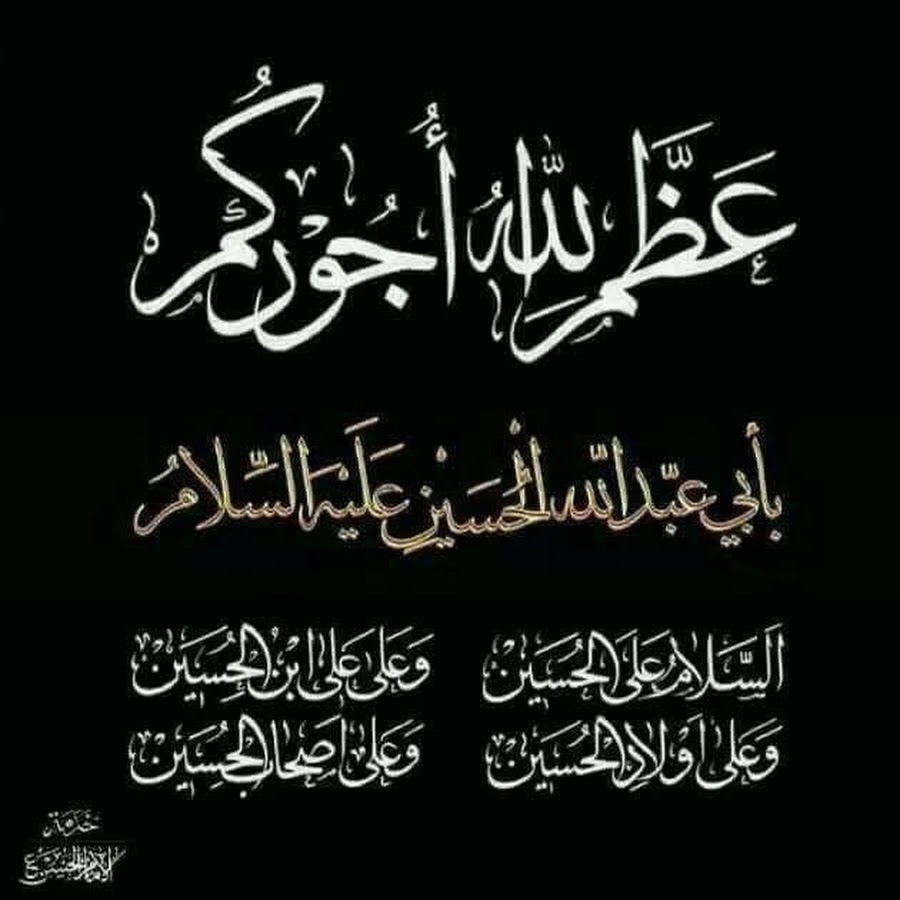 عَظَّمَ اللهُ أُجُورَكُم
بأبي عبد الله الحسين عليه السلام
السلام على الحسين وعلى علي ابن الحسين
وعلى اولاد الحسين وعلى اصحاب الحسين
خدمة
الامام الحسين ع